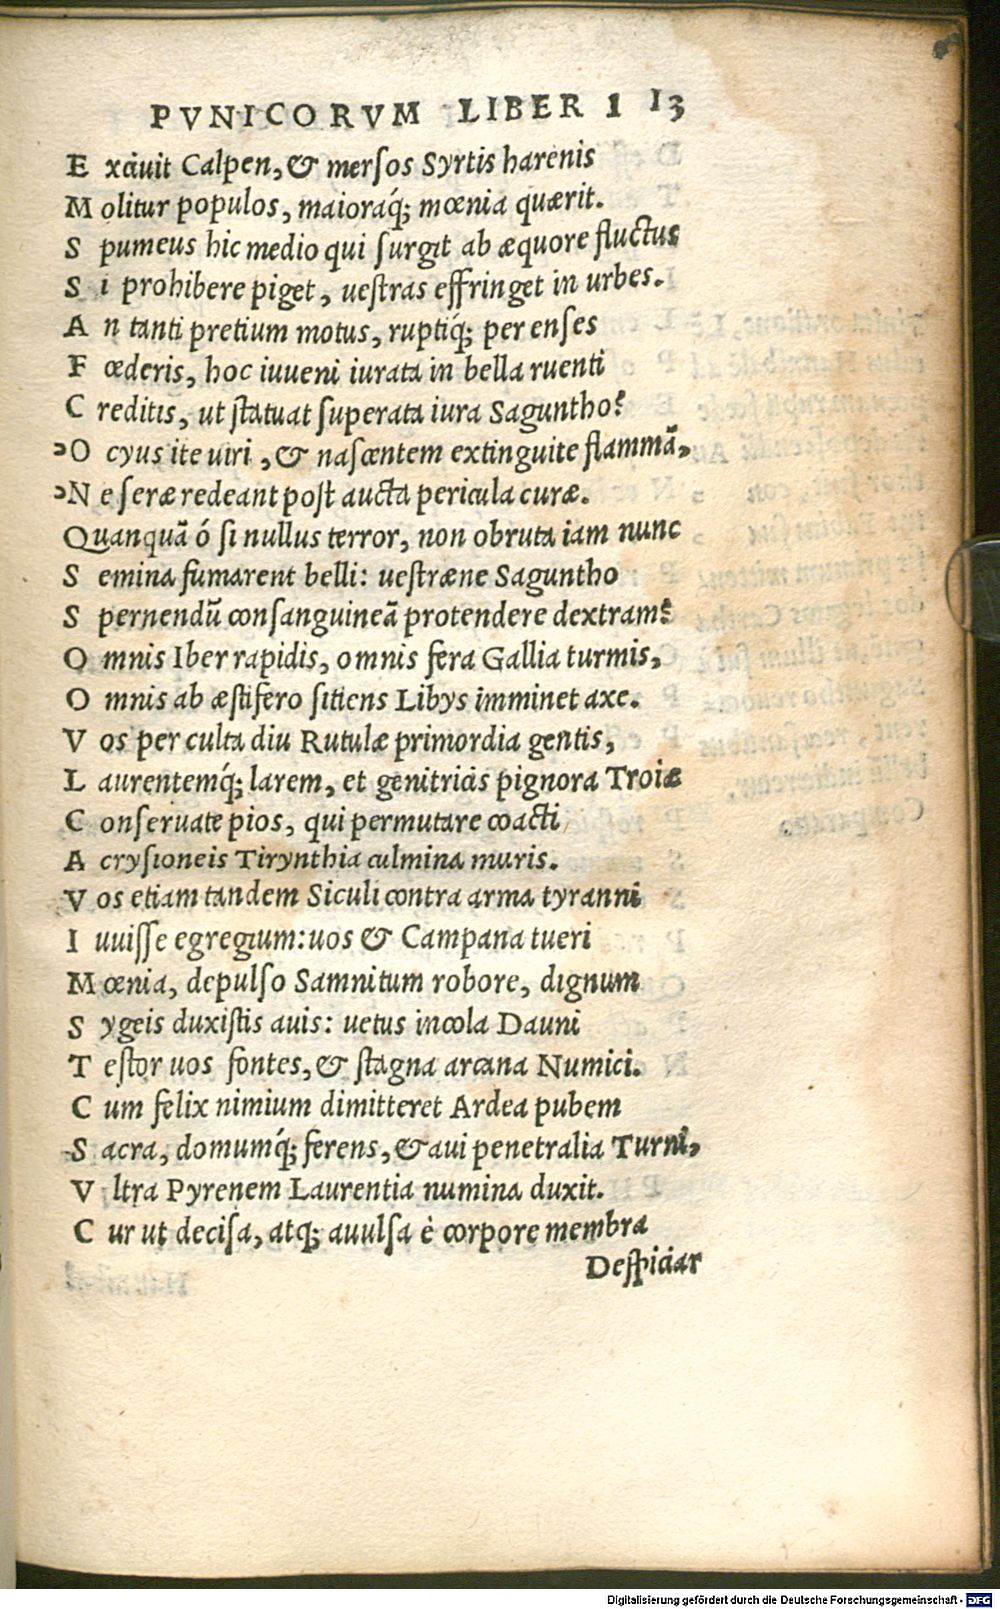 PVNICORVM LIBER 1 13
E xciuit Calpen, & mersos Syrtis harenis
M olitur populos, maioraq́; mœnia quærit.
S pumeus hic medio qui surgit ab æquore fluctus
S i prohibere piget, uestras effringet in urbes.
A n tanti pretium motus, ruptiq́; per enses
F œderis, hoc iuueni iurata in bella ruenti
C reditis, ut statuat superata iura Sagunthos?
"O cyus ite uiri, & nascentem extinguite flammā,
"N e seræ redeant post aucta pericula curæ.
Quanquā ó si nullus terror, non obruta iam nunc
S emina fumarent belli: uestræne Saguntho
S pernendū consanguineā protendere dextram?
O mnis Iber rapidis, omnis fera Gallia turmis,
O mnis ab æstifero sitiens Libys imminet axe.
V os per culta diu Rutulæ primordia gentis,
L aurentemq́; larem, et genitricis pignora Troiæ
C onseruate pios, qui permutare coacti
A crysioneis Tirynthia culmina muris.
V os etiam tandem Siculi contra arma tyranni
I uuisse egregium: uos & Campana tueri
M œnia, depulso Samnitum robore, dignum
S ygeis duxistis auis: uetus incola Dauni
T estor uos fontes, & stagna arcana Numici.
C um felix nimium dimitteret Ardea pubem
S acra, domumq́; ferens, & aui penetralia Turni,
V ltra Pyrenem Laurentia numina duxit.
C ur ut decisa, atq; auulsa è corpore membra
Despiciar
Digitalisierung gefördert durch die Deutsche Forschungsgemeinschaft - DFG